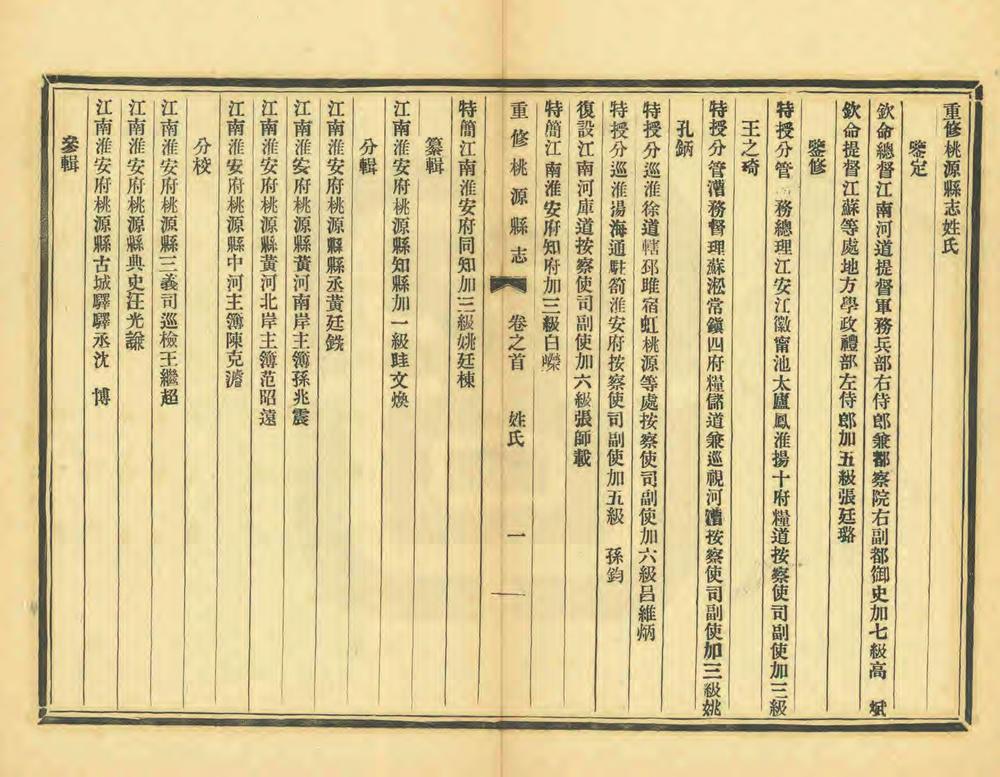 重修桃源縣志姓氏
鑒定
欽命總督江南河道提督軍務兵部右侍郎兼都察院右副都御史加七級高　斌
欽命提督江蘇等處地方學政禮部左侍郎加五級張廷璐
鑒修
特授分管　務總理江安江徽甯池太廬鳳淮揚十府糧道按察使司副使加三級
王之琦
特授分管漕務督理蘇淞常鎮四府糧儲道兼巡視河漕按察使司副使加三級姚
孔鈵
特授分巡淮徐道轄邳睢宿虹桃源等處按察使司副使加六級呂維炳
特授分巡淮揚海通駐箚淮安府按察使司副使加五級　孫鈞
復設江南河庫道按察使司副使加六級張師載
特簡江南淮安府知府加三級白嶸
重修桃源縣志　卷之首　姓氏　一
特簡江南淮安府同知加三級姚廷棟
纂輯
江南淮安府桃源縣知縣加一級眭文煥
分輯
江南淮安府桃源縣縣丞黃廷銑
江南淮安府桃源縣黃河南岸主簿孫兆震
江南淮安府桃源縣黃河北岸主簿范昭遠
江南淮安府桃源縣中河主簿陳克濬
分校
江南淮安府桃源縣三義司巡檢王繼超
江南淮安府桃源縣典史汪光
江南淮安府桃源縣古城驛驛丞沈　博
參輯